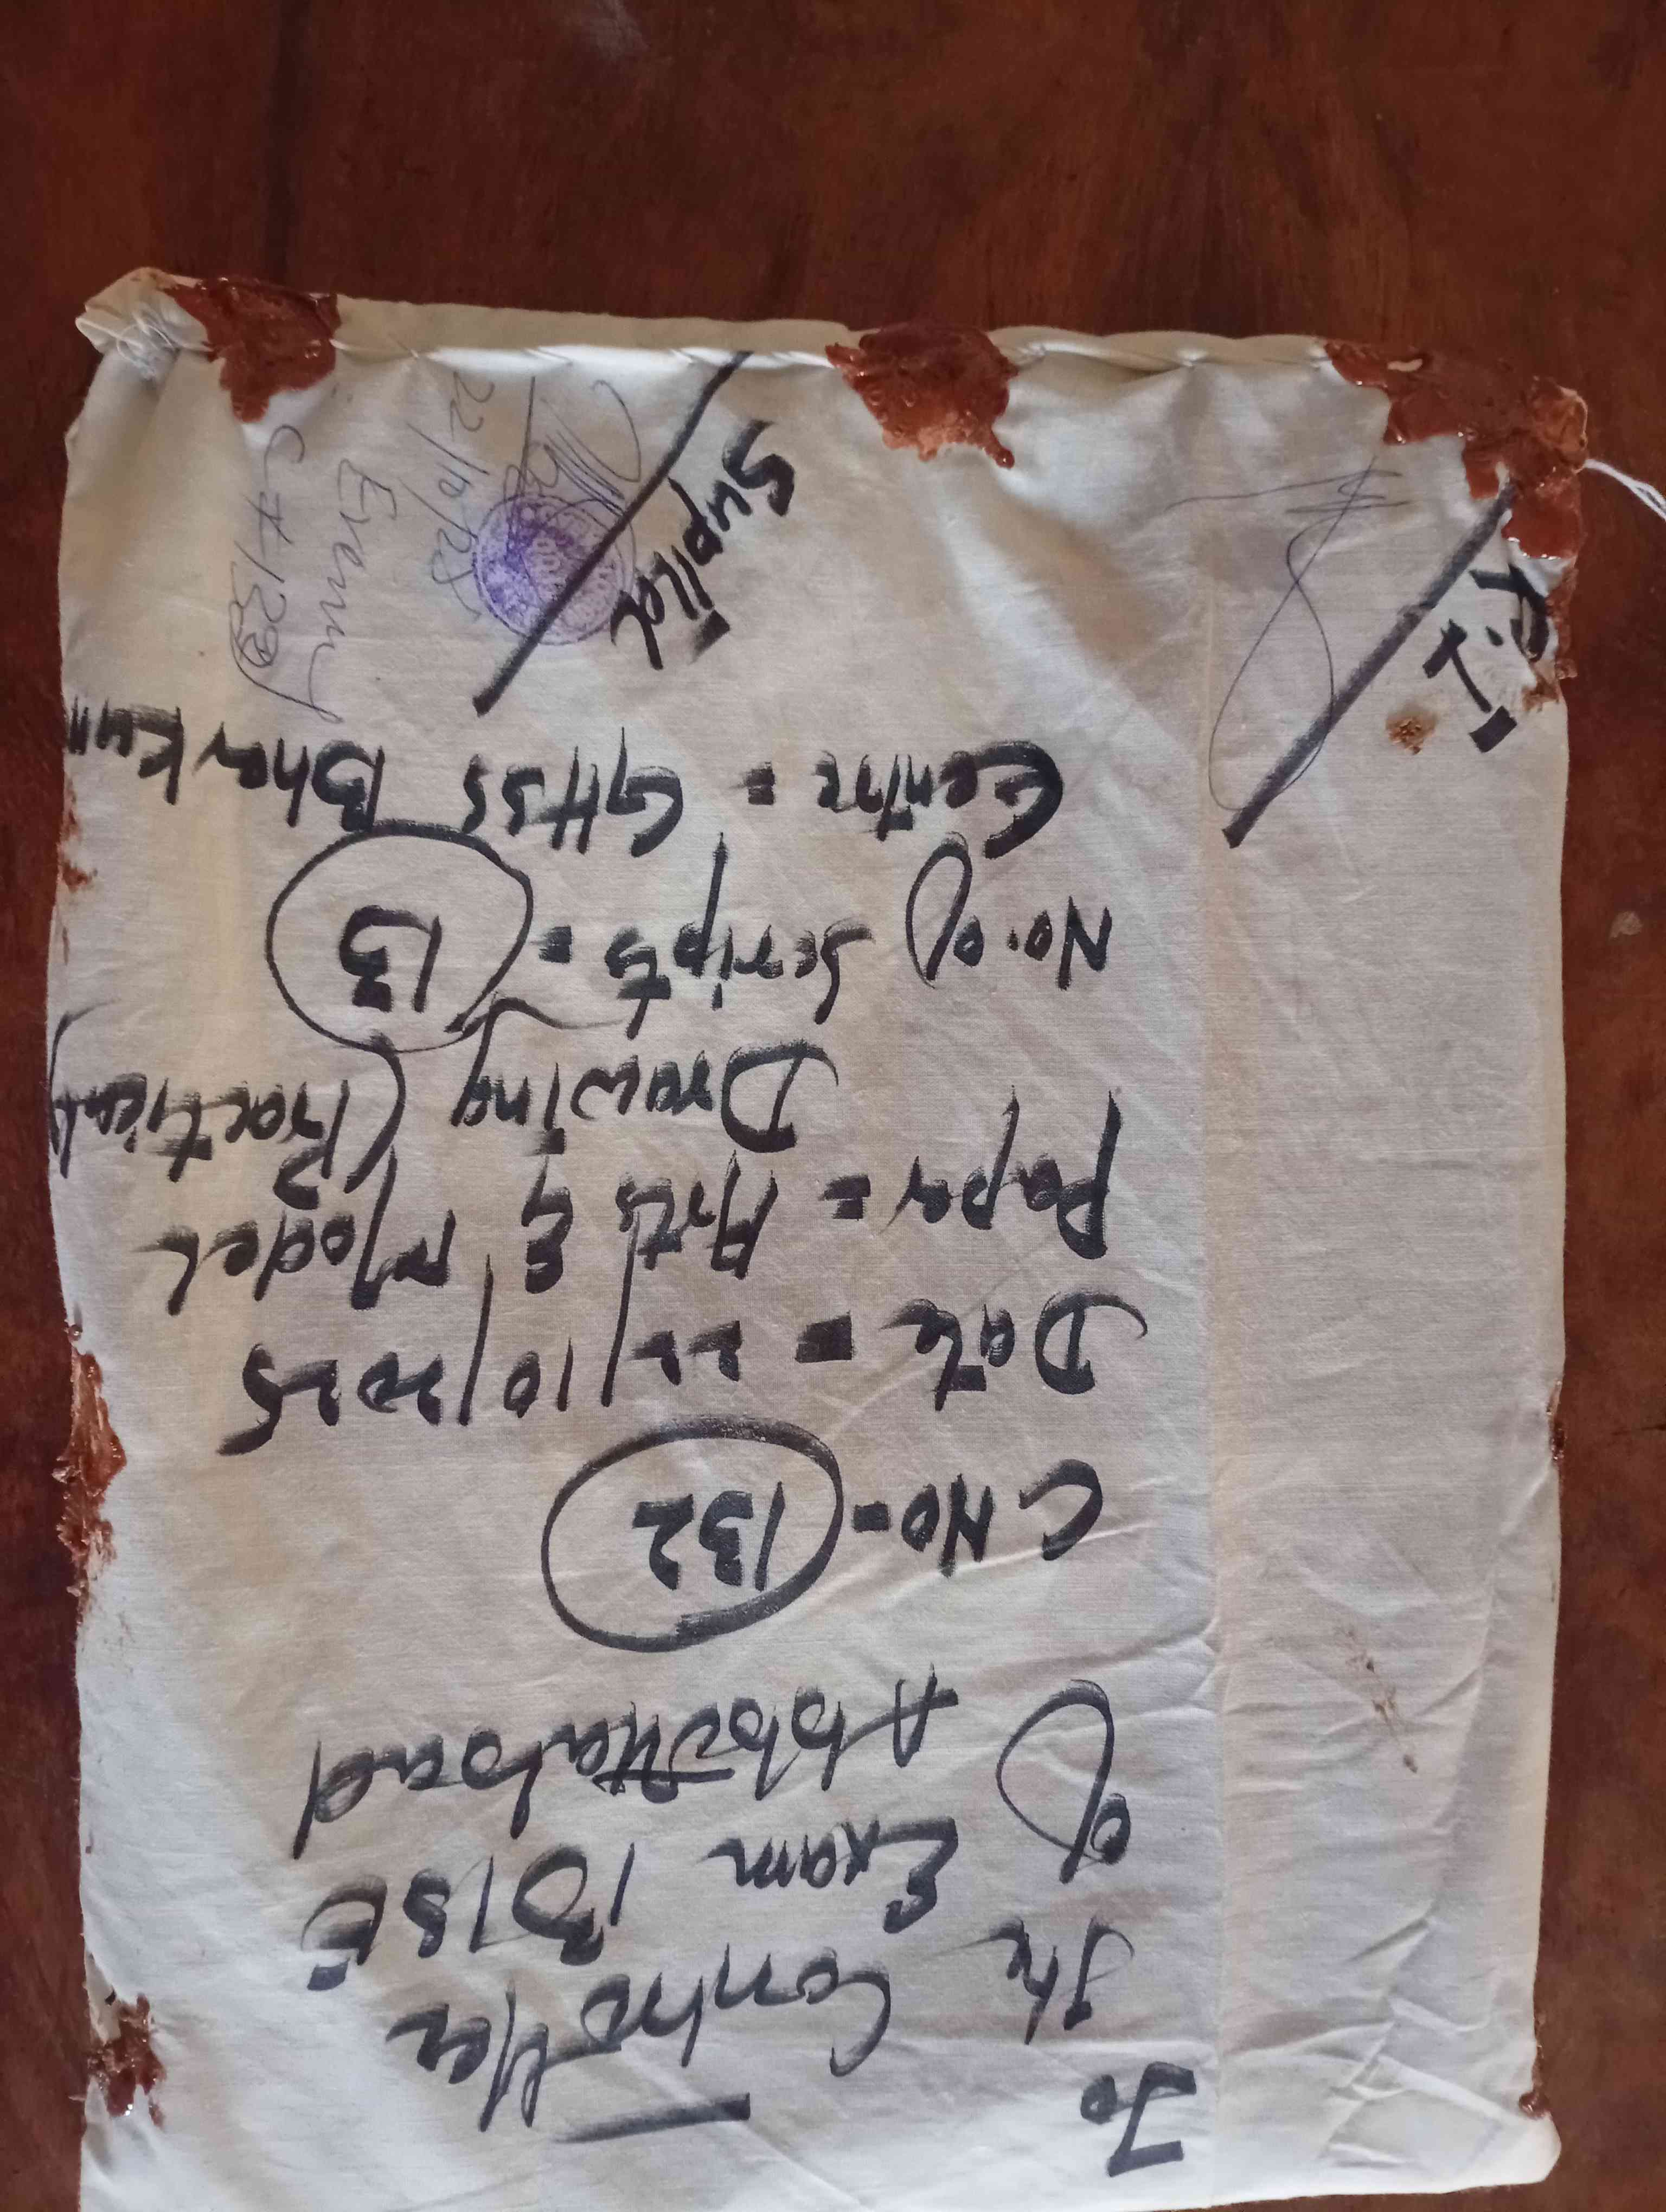 To
The Controller
of Exam BISE
Abbottabad
C No = 132
Date = 22/10/2025
Paper = Arts & Model
Drawing (Practical)
No. of Scripts = 13
Centre = GHSS
Supdt
22/10/25
Evening